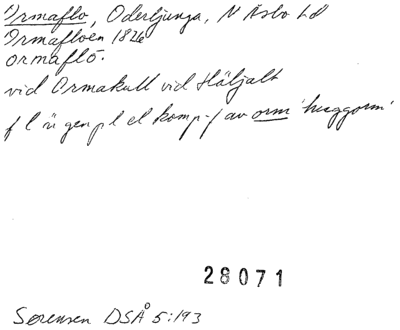 Ormaflo, Oderljunga, N Åsbo hd
Ormafloen 1826
ormaflō.
vid Ormakull vid Häljalt
f l ä gen pl el komp-f av orm 'huggorm'
28071
Sørensen DSÅ 5:193